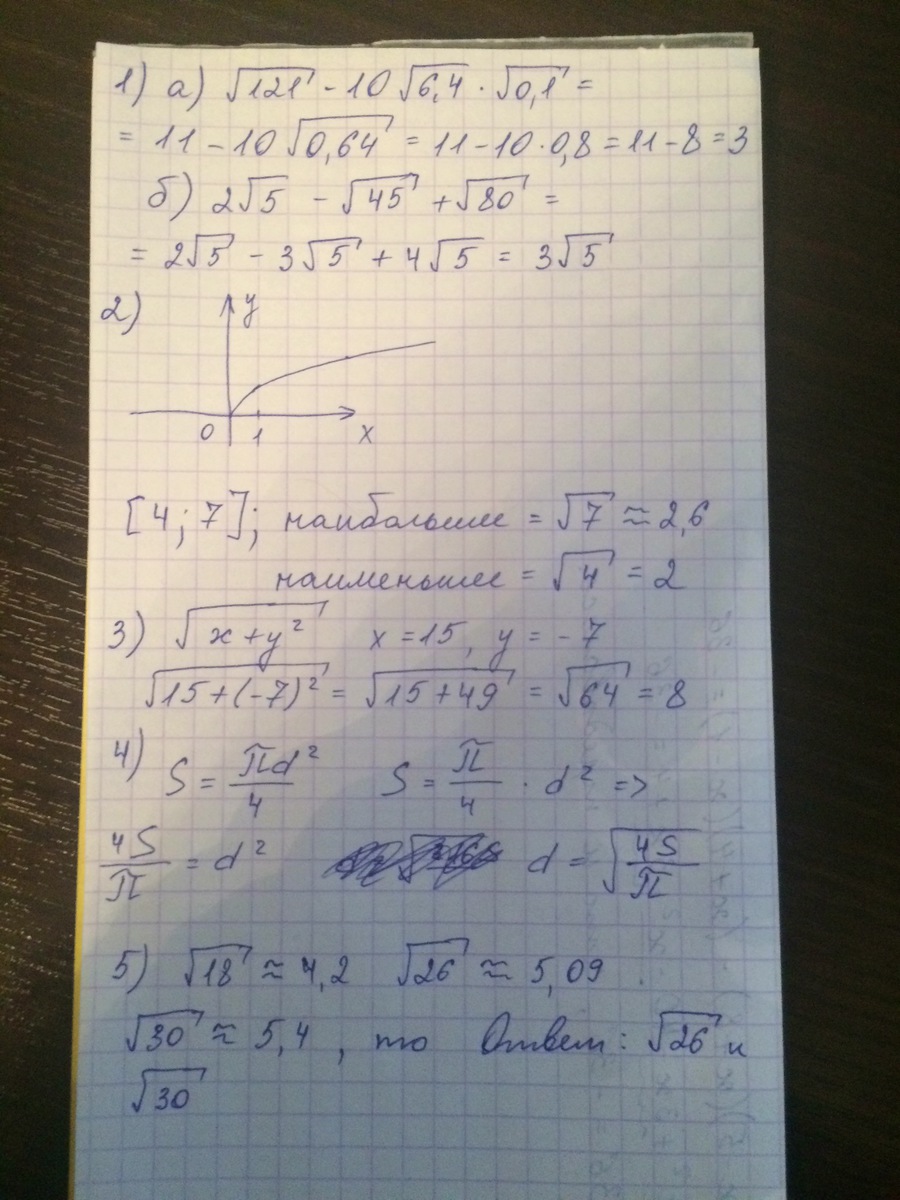 1) а) √121 - 10 √6,4 · √0,1 =
= 11 - 10 √0,64 = 11 - 10 · 0,8 = 11 - 8 = 3
б) 2√5 - √45 + √80 =
= 2√5 - 3√5 + 4√5 = 3√5
2)
y
0 1 x
[4; 7]; наибольшее = √7 ≈ 2,6
наименьшее = √4 = 2
3) √(x + y²) x = 15, y = -7
√(15 + (-7)²) = √(15 + 49) = √64 = 8
4) S = πd²/4 S = π/4 · d² =>
4S/π = d² d = √(4S/π)
5) √18 ≈ 4,2 √26 ≈ 5,09
√30 ≈ 5,4, то Ответ: √26 и
√30